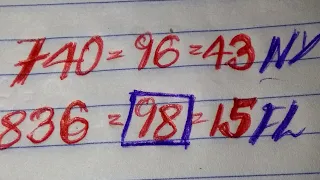 740=96=43 NY
836=98=15 FL